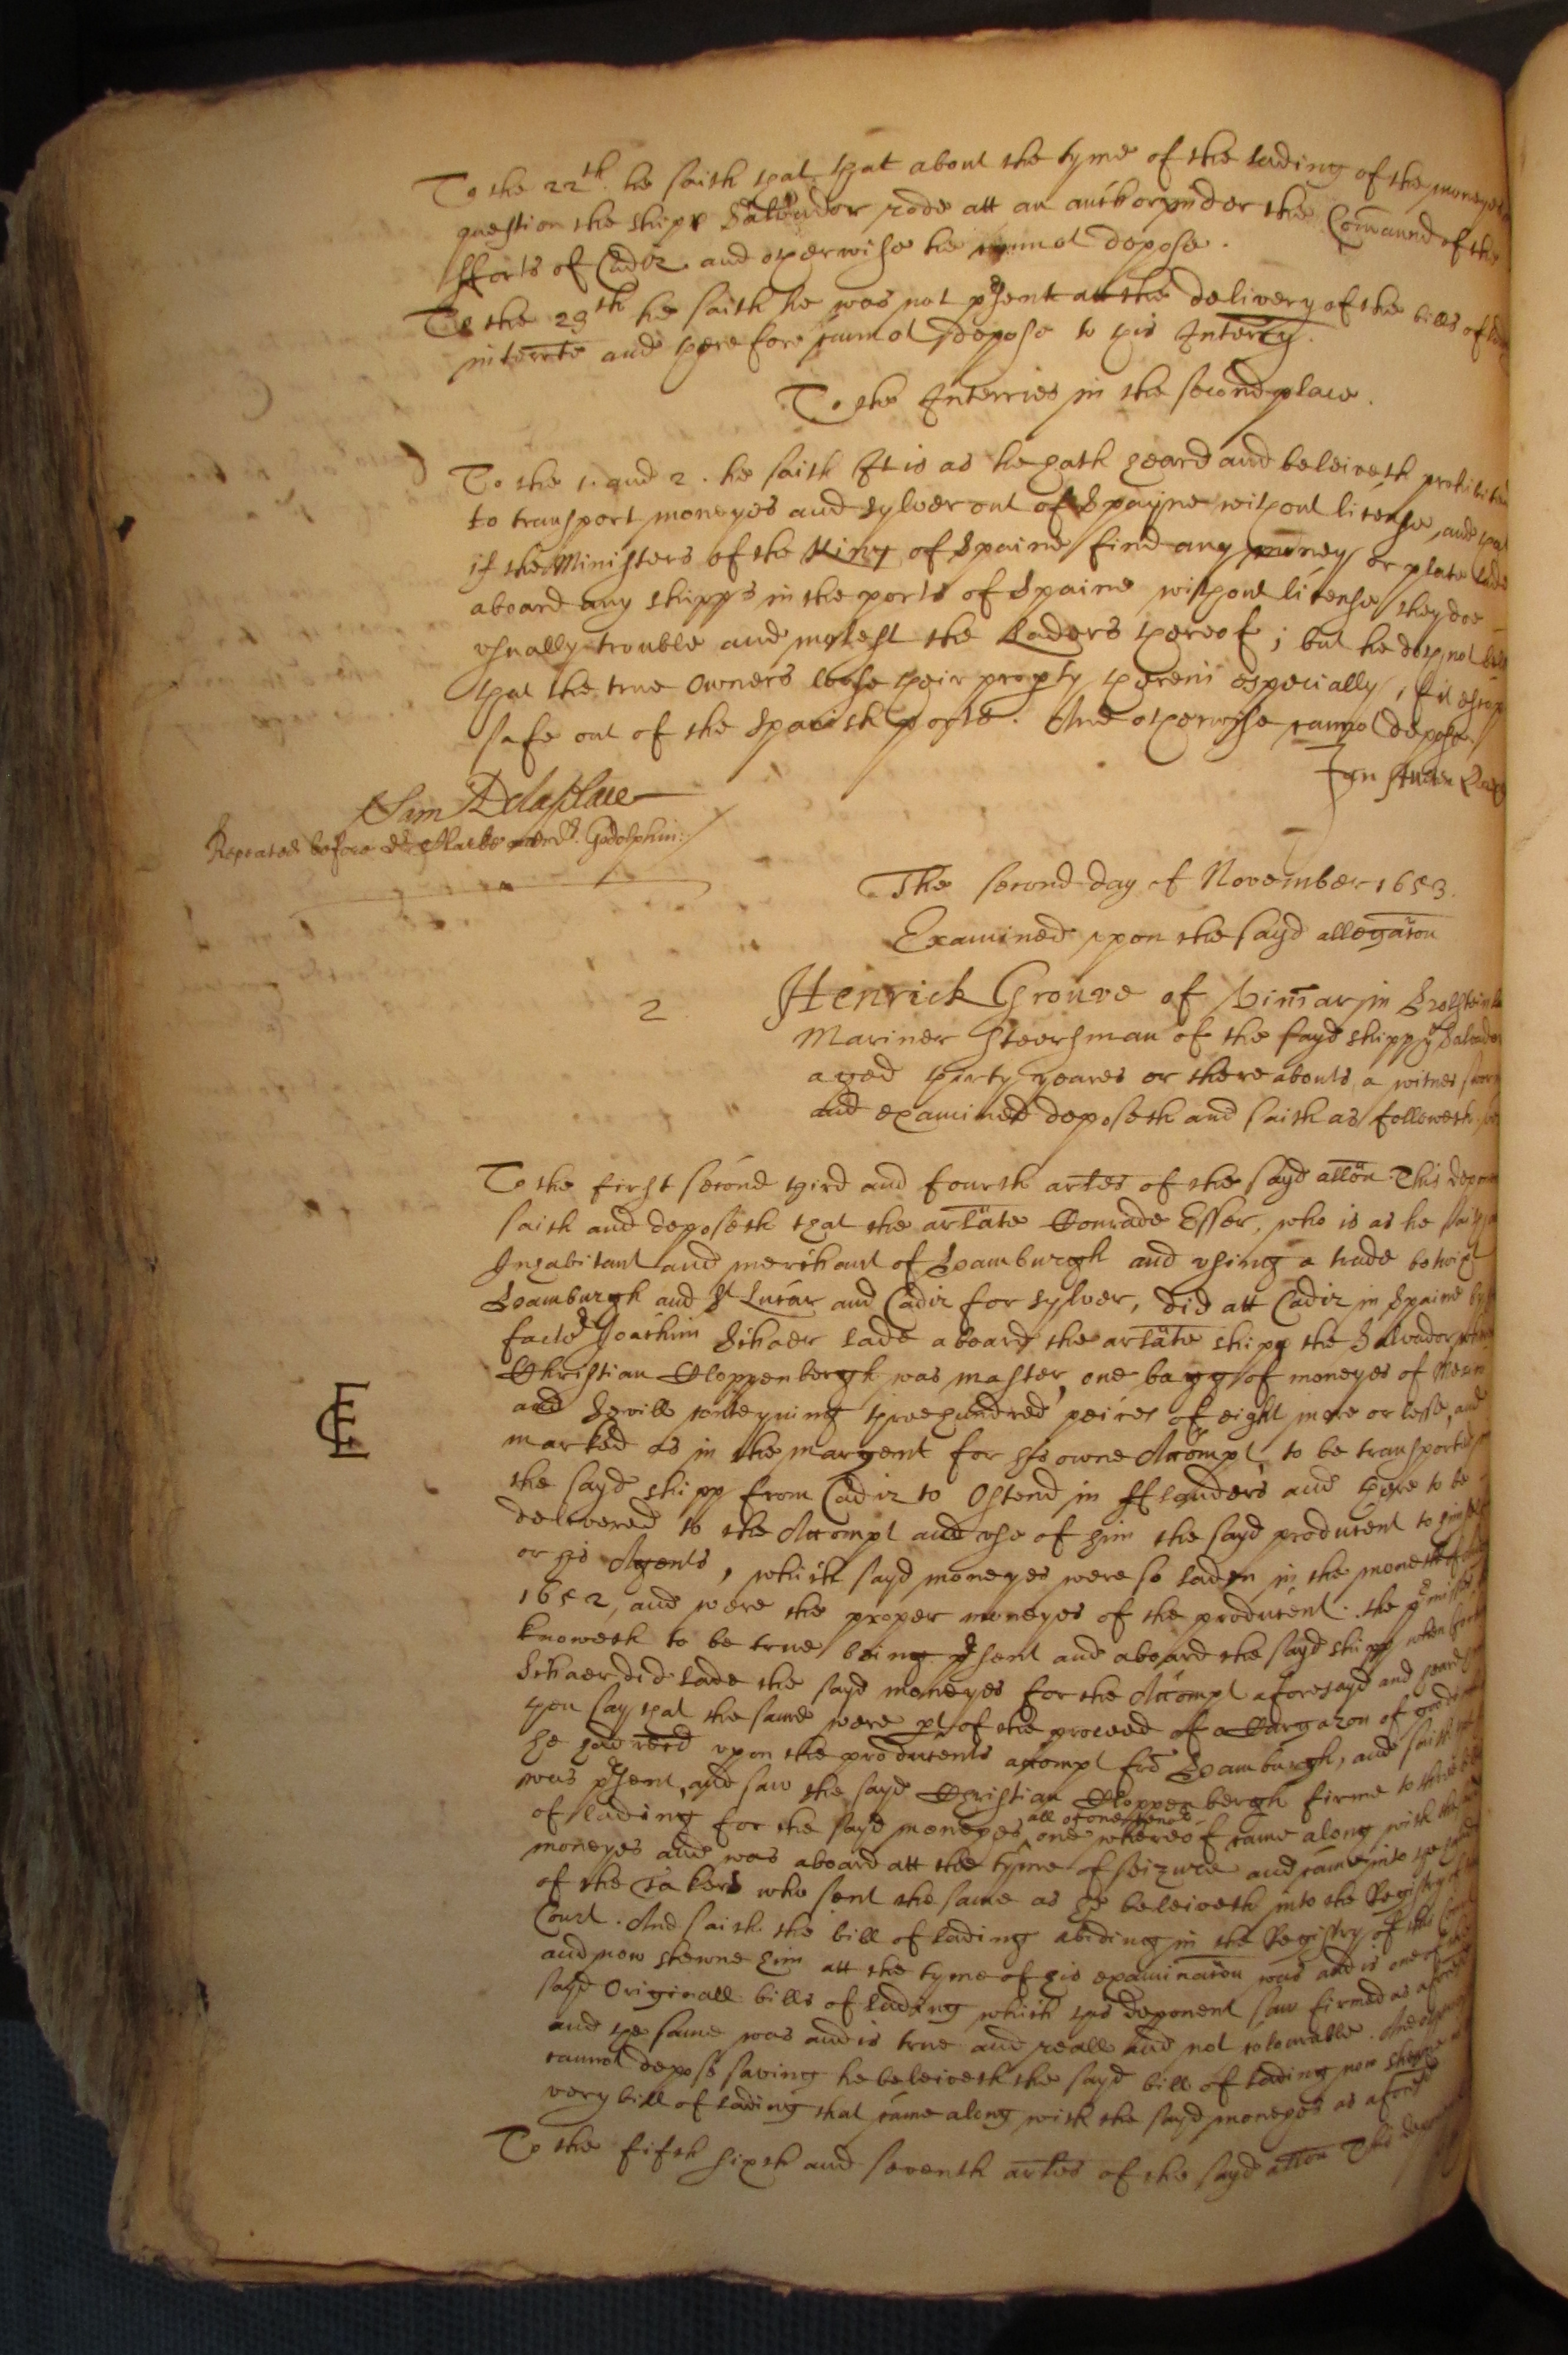 To the 22th. he saith that that about the tyme of the lading of the moneyes
question the shipp Salvador rode att an anchor under the Comaund of the
fforts of Cadiz and otherwise he cannot depose.
To the 23th he saith he was not pñsent att the delivery of the bills of
interrte and therefore cannot depose to this Interry.
To the Interries in the second place.
To the 1. and 2. he saith It is as he hath heard and beleiveth prohibited
to transport moneyes and sylver out of Spayne without license, and that
if the Ministers of the King of Spaine find any money or plate lade
aboard any shipps in the ports of Spaine without license they doe
usually trouble and molest the Laders thereof; but he doth not
that the true Owners loose their propty therein especially, if it escap
safe out of the Spanish ports. And otherwise cannot depose.
Jan
Sam Delaplace
Repeated before dr. Clarke and dr. Godolphin:
The second day of November 1653.
Examined upon the sayd allegačon
2
Henrick Grouve of in Holstein
Mariner Steersman of the sayd shipp ye Salvador
aged thirty yeares or thereabouts a witnes sworn
and examined deposeth and saith as followeth
To the first second third and fourth artes of the sayd allon This
saith and deposeth that the arlate Conrade Esser, who is as he saith
Inhabitant and merchant of Hamburgh and using a trade betwixt
Hamburgh and St Lucar and Cadiz for sylver, did att Cadiz in Spaine by
factor Joachim Schaer lade aboard the arlate shipp the Salvador
Christian Cloppenbergh was master, one bagg of moneyes of
and Sevill conteyning three hundred peices of eight more or lesse, and
CE
marked as in the margent for his owne Accompt, to be transported
the sayd shipp from Cadiz to Ostend in fflanders and there to be
delivered to the Accompt and use of him the sayd producent to himself
or his Agents, which sayd moneyes were so laden in the moneth of
1652, and were the proper moneyes of the producent. the
knoweth to be true being pñsent and aboard the sayd shipp when
Schaer did lade the sayd moneyes for the Accompt aforesayd and heard
him say that the same were pt of the proceed of a Cargazon of
he had recd upon the producents accompt from Hamburgh, and saith
was pñsent and saw the sayd Christian Cloppenbergh firme to three bills
of lading for the sayd moneyes all of one tenor one whereof came along with the
moneyes and was aboard att the tyme of seizure and came into the
of the takers who sent the same as he beleiveth into the Registry of
Court. And saith the bill of lading abiding in the Registry of the
and now shewne him att the tyme of his examinačon was and is one of the
sayd Originall bills of lading which this deponent saw firmed as aforesd
and the same was and is true and reall and not colourable. And
cannot depose saving he beleiveth the sayd bill of lading now shewne
very bill of lading that came along with the sayd moneyes as aforesd
To the fifth sixth and seventh artes of the sayd allon This